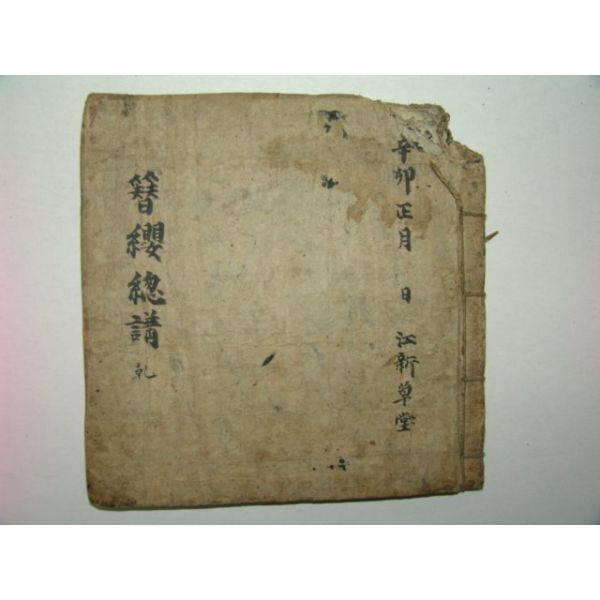 辛卯正月 日 江新草堂
簪纓總講 乾